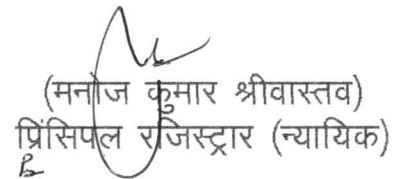 (मनोज कुमार श्रीवास्तव)
प्रिंसिपल रजिस्ट्रार (न्यायिक)